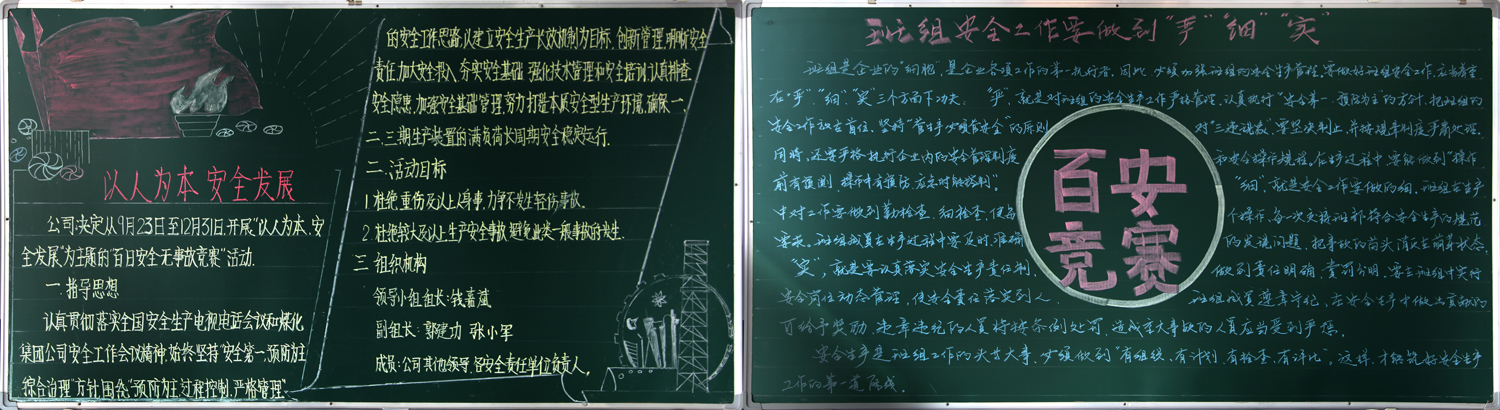 以人为本 安全发展
公司决定从9月23日至12月31日，开展“以人为本、安
全发展”为主题的“百日安全无事故竞赛”活动．
一．指导思想
认真贯彻落实全国安全生产电视电话会议和煤化
集团公司安全工作会议精神，始终坚持“安全第一、预防为主
综合治理”方针，围绕“预防为主，过程控制，严格管理”
的安全工作思路，以建立安全生产长效机制为目标，创新管理，明晰安全
责任，加大安全投入，夯实安全基础，强化技术管理和安全培训，认真排查
安全隐患，加强安全基础管理，努力打造本质安全型生产环境，确保一、
二、三期生产装置的满负荷长周期安全稳定运行．
二．活动目标
1．杜绝重伤及以上人身事故，力争不发生轻伤事故．
2．杜绝较大及以上生产安全事故，避免一般事故的发生．
三．组织机构
领导小组组长：钱嘉斌
副组长：郭建功 张小军
成员：公司其他领导、各安全责任单位负责人。
班组安全工作要做到“严”“细”“实”
班组是企业的“细胞”，是企业各项工作的第一执行者，因此，必须加强班组的安全生产管理，要做好班组安全工作，应当着重
在“严”“细”“实”三个方面下功夫。“严”，就是对班组的安全生产工作严格管理，认真执行“安全第一、预防为主”的方针，把班组的
安全工作放在首位，坚持“管生产必须管安全”的原则
对“三违现象”，要坚决制止，并按规章制度严肃处理．
同时，还要严格执行企业内的安全管理制度
和安全操作规程。在生产过程中，要能做到“操作
前有预测，操作中有预防，应急时能控制”。
“细”，就是安全工作要做的细，班组在生产
中对工作要做到勤检查，细检查，使每
个操作，每一次交接班都符合安全生产的规范
要求。班组成员在生产过程中要及时、准确
的发现问题，把事故的苗头消灭在萌芽状态．
“实”，就是要认真落实安全生产责任制，
做到责任明确，赏罚分明，要在班组中实行
安全岗位动态管理，使安全责任落实到人．
班组成员遵章守纪，在安全生产中做出贡献的
可给予奖励，违章违纪的人员将按条例处罚，造成重大事故的人员应当受到严惩．
安全生产是班组工作的头等大事，必须做到“有组织、有计划、有检查、有评比”，这样，才能筑好安全生产
工作的第一道防线．
百安
竞赛